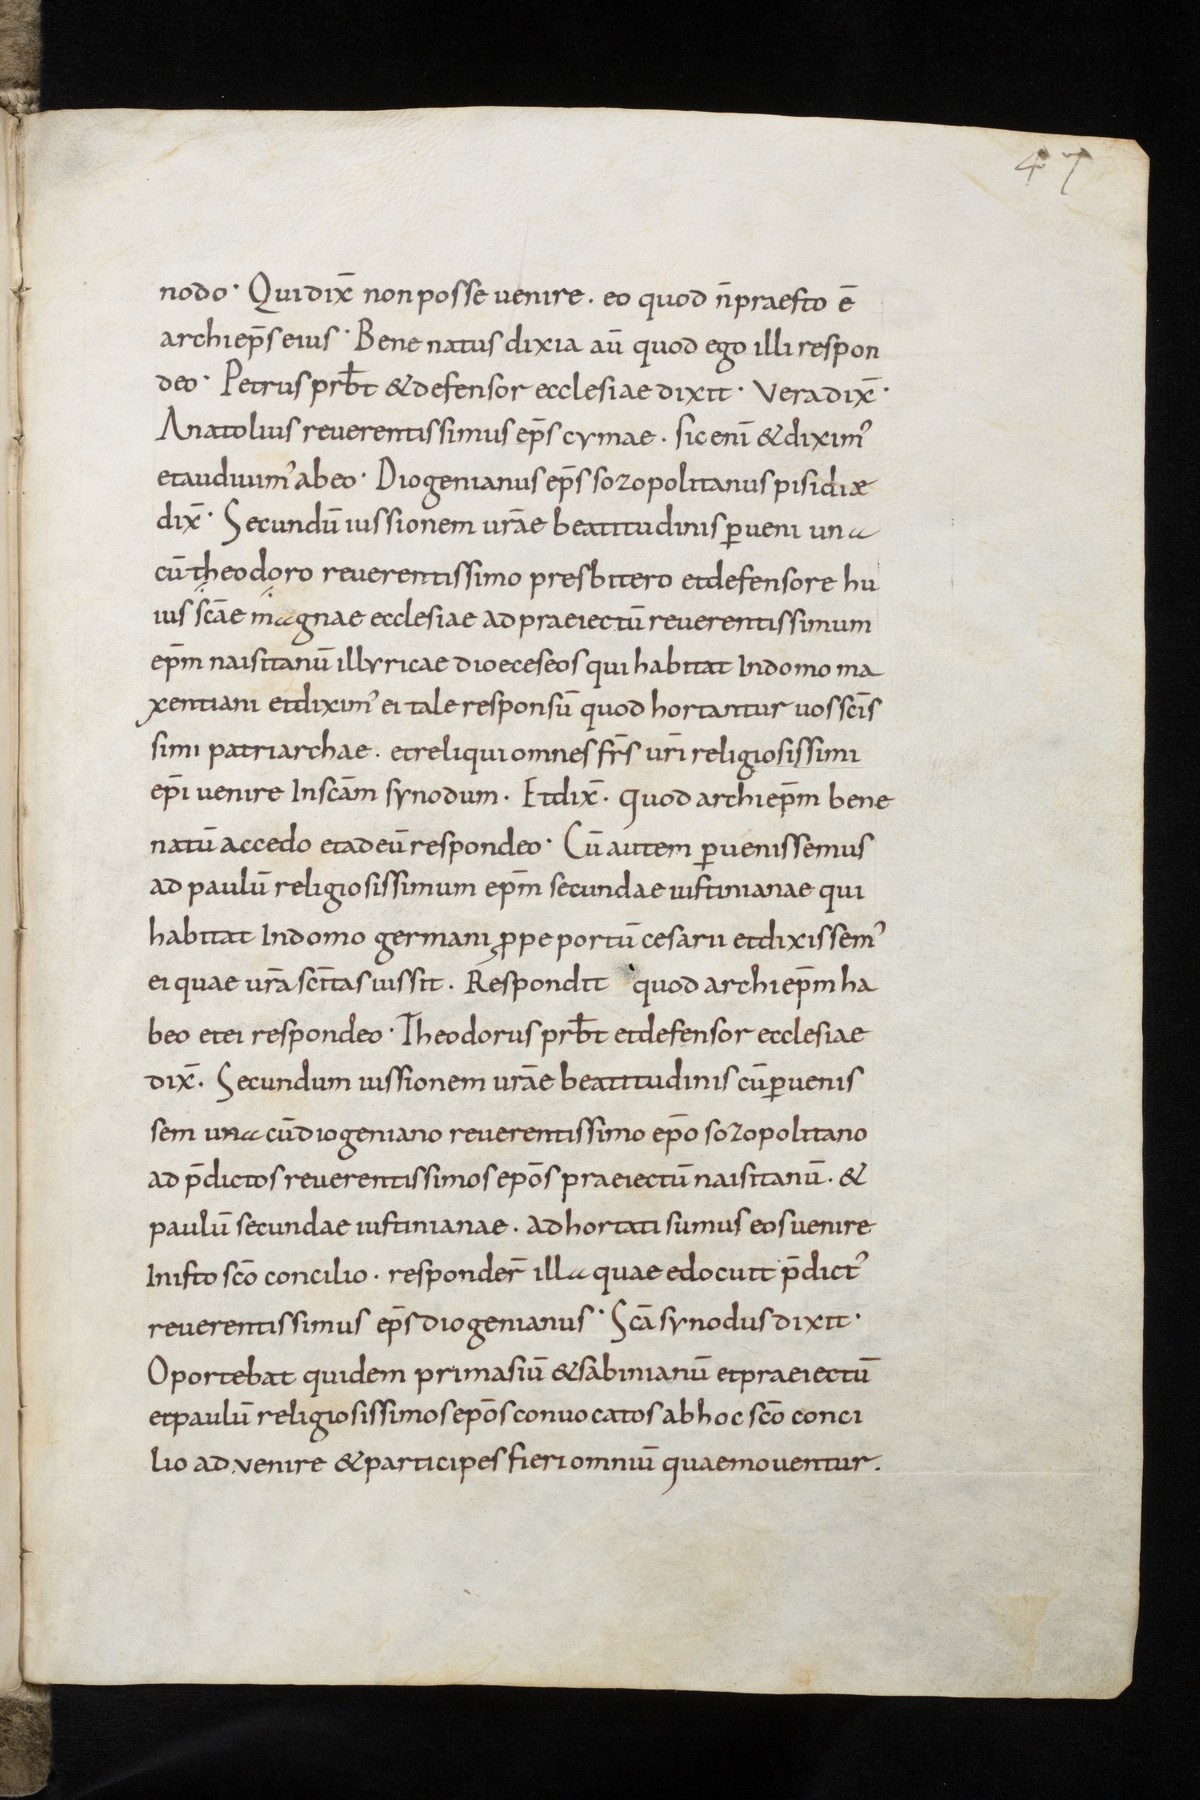 47
nodo· Qui dix̄ non posse uenire· eo quod n̄ praesto ē
archiep̄s eius· Bene natus dixia aū quod ego illi respon
deo· Petrus prb̄t & defensor ecclesiae dixit· Vera dix̄·
Anatolius reuerentissimus ep̄s cymae· sic enī & diximꝰ
et audiuimꝰ ab eo· Diogenianus ep̄s sozopolitanus pisidiae
dix̄· Secundū iussionem urāe beatitudinis ꝑueni una
cū theodoro reuerentissimo presbitero et defensore hu
ius scāe magnae ecclesiae ad praeiectū reuerentissimum
ep̄m naisitanū illyricae dioeceseos qui habitat In domo ma
xentiani et diximꝰ ei tale responsū quod hortantur uos scīs
simi patriarchae· et reliqui omnes fr̄s ur̄i religiosissimi
ep̄i uenire In scām synodum· Et dix̄· quod archiep̄m bene
natū accedo et ad eū respondeo· Cū autem ꝑuenissemus
ad paulū religiosissimum ep̄m secundae iustinianae qui
habitat In domo germani ꝓpe portū cesarii et dixissemꝰ
ei quae urā sc̄itas iussit· Respondit quod archiep̄m ha
beo et ei respondeo· Theodorus prb̄t et defensor ecclesiae
dix̄· Secundum iussionem urāe beatitudinis cū ꝑuenis
sem una cū diogeniano reuerentissimo ep̄o sozopolitano
ad p̄dictos reuerentissimos ep̄os praeiectū naisitanū· &
paulū secundae iustinianae· adhortati sumus eos uenire
In isto scō concilio· responder̄ illa quae edocuit p̄dictꝰ
reuerentissimus ep̄s diogenianus· Scā synodus dixit·
Oportebat quidem primasiū & sabinianū et praeiectū
et paulū religiosissimos ep̄os conuocatos ab hoc scō conci
lio aduenire & participes fieri omniū quae mouentur.